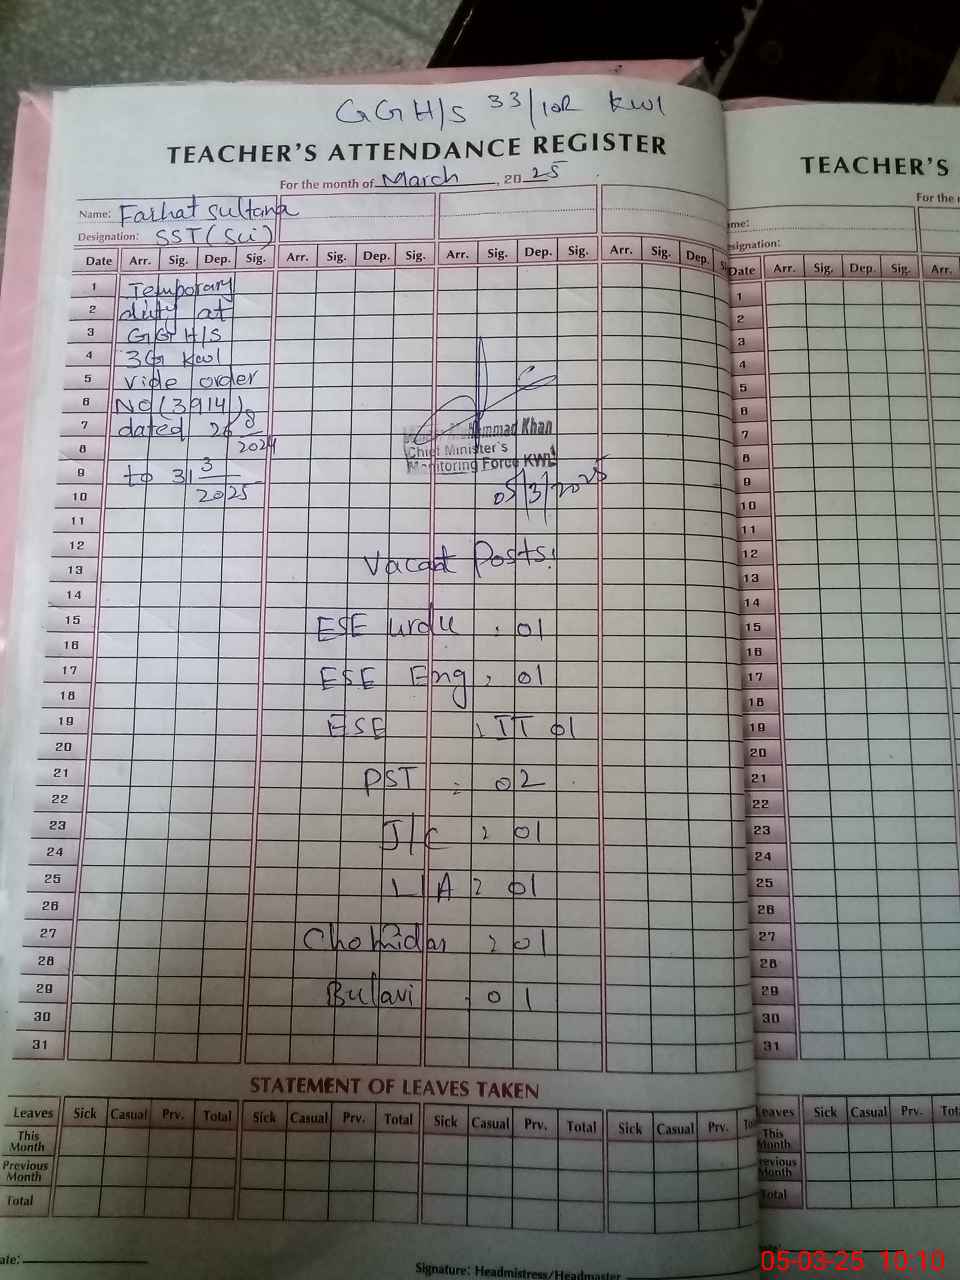 GGH/S 33/10R KWl
TEACHER'S ATTENDANCE REGISTER
For the month of March, 2025
Name: Farhat Sultana
Designation: SST (Sci)
Date Arr. Sig. Dep. Sig. Arr. Sig. Dep. Sig. Arr. Sig. Dep. Sig. Arr. Sig. Dep.
1 Temporary
2 duty at
3 GG H/S
4 3G Kwl
5 vide order
6 NO (3914)
7 dated 26 8
8 2024
9 to 31 3
10 2025
11
12
13
14
15
16
17
18
19
20
21
22
23
24
25
26
27
28
29
30
31
Muhammad Khan
Chief Minister's
Monitoring Force KWL
05/3/2025
Vacant Posts:
ESE urdu : 01
ESE Eng : 01
ESE : IT 01
PST : 02
J/C : 01
L/A : 01
Chokidar : 01
Bulavi : 01
STATEMENT OF LEAVES TAKEN
Leaves Sick Casual Prv. Total Sick Casual Prv. Total Sick Casual Prv. Total Sick Casual Prv.
This Month
Previous Month
Total
Signature: Headmistress/Headmaster
TEACHER'S
For the
Date Arr. Sig. Dep. Sig. Arr.
1
2
3
4
5
6
7
8
9
10
11
12
13
14
15
16
17
18
19
20
21
22
23
24
25
26
27
28
29
30
31
Leaves Sick Casual Prv.
This Month
Previous Month
Total
05-03-25 10:10